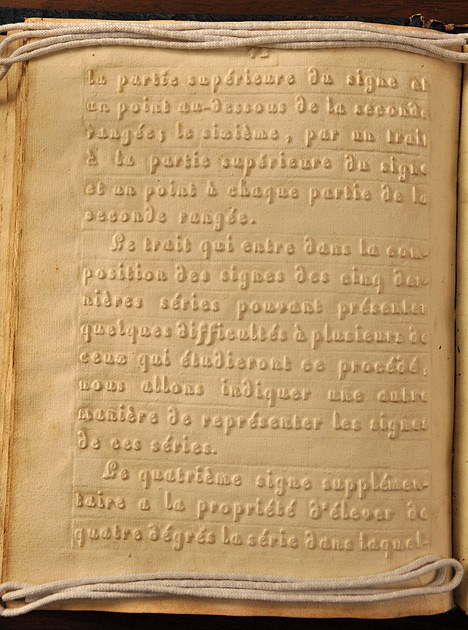 la partie supérieure du signe et
un point au-dessous de la seconde
rangée; le sixième, par un trait
à la partie supérieure du signe
et un point à chaque partie de la
seconde rangée.
Le trait qui entre dans la com-
position des signes des cinq der-
nières séries pouvant présenter
quelques difficultés à plusieurs de
ceux qui étudieront ce procédé,
nous allons indiquer une autre
manière de représenter les signes
de ces séries.
Le quatrième signe supplémen-
taire a la propriété d'élever de
quatre dégrés la série dans laquel-